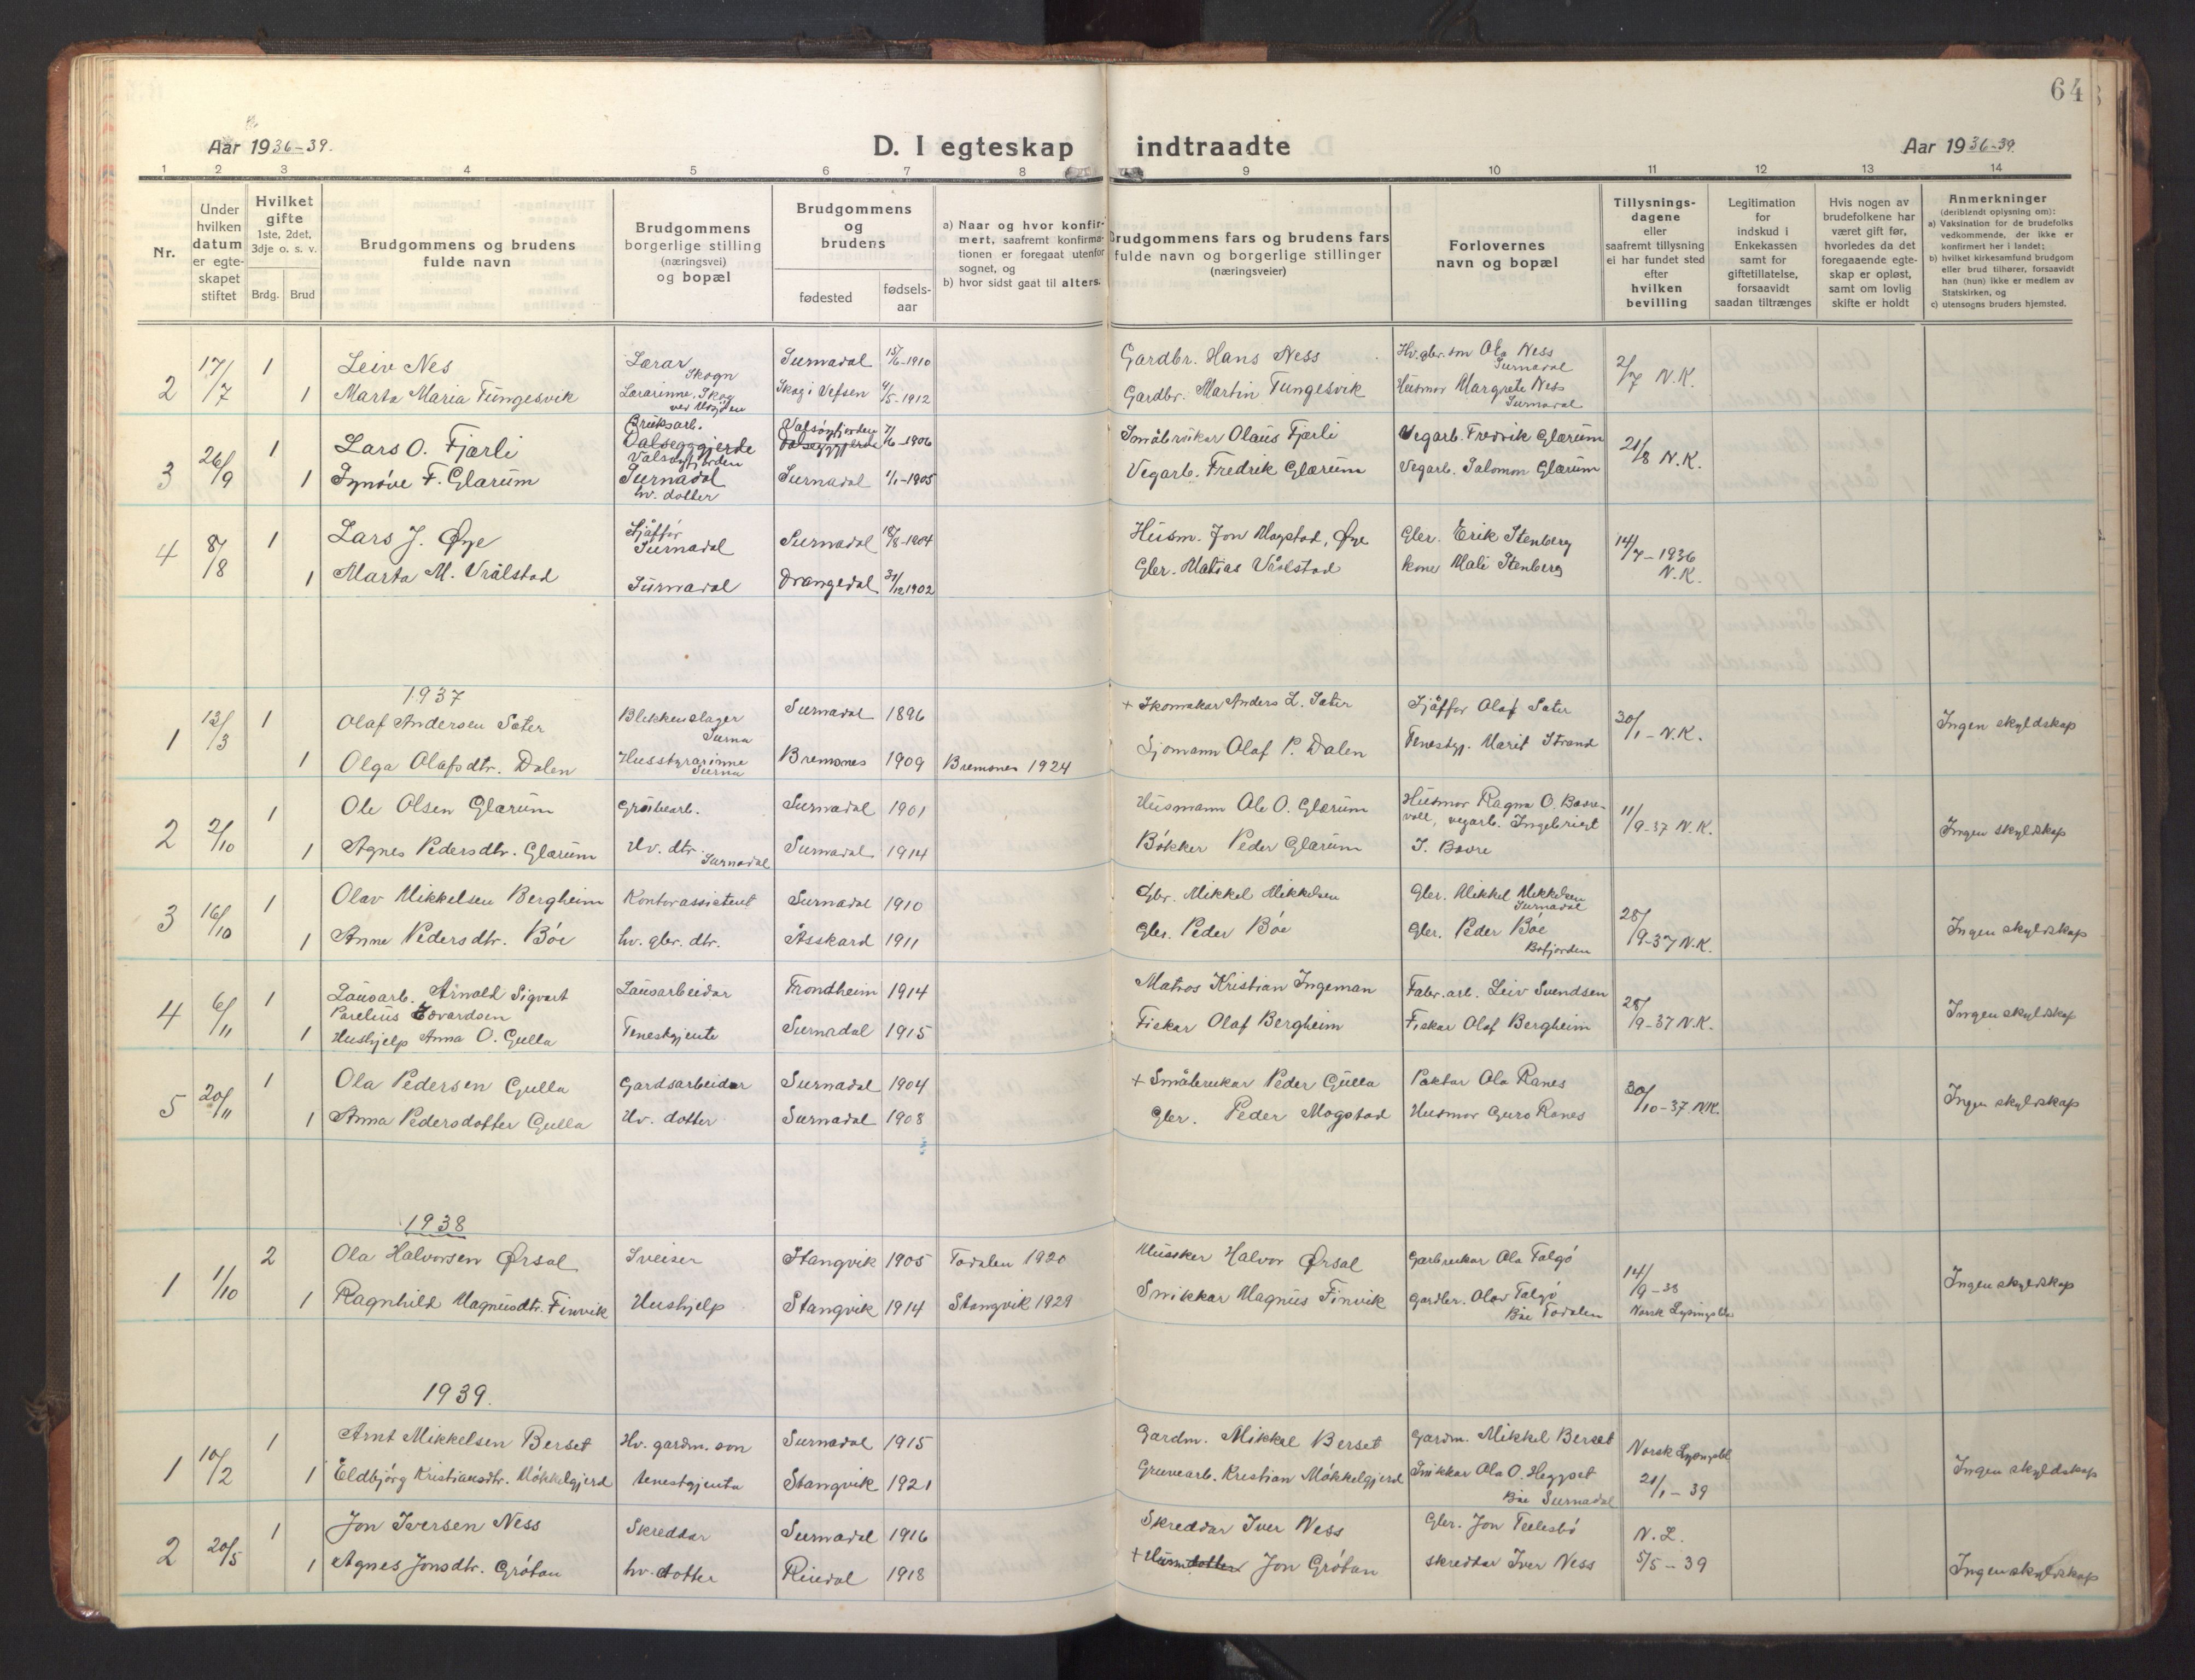 64
Aar 1936-39.
D. I egteskap indtraadte
Aar 1936-39
1 2 3 4 5 6 7 8 9 10 11 12 13 14
Nr.
Under hvilken datum er egte-skapet stiftet
Hvilket gifte
1ste, 2det, 3dje o. s. v.
Brdg. Brud
Brudgommens og brudens fulde navn
Brudgommens borgerlige stilling (næringsvei) og bopæl
Brudgommens og brudens
fødested
fødsels-aar
a) Naar og hvor konfir-mert, saafremt konfirma-tionen er foregaat utenfor sognet, og
b) hvor sidst gaat til alters.
Brudgommens fars og brudens fars fulde navn og borgerlige stillinger (næringsveier)
Forlovernes navn og bopæl
Tillysnings-dagene eller saafremt tillysning ei har fundet sted efter hvilken bevilling
Legitimation for indskud i Enkekassen samt for giftetillatelse, forsaavidt saadan tiltrænges
Hvis nogen av brudefolkene har været gift før, hvorledes da det foregaaende egte-skap er opløst, samt om lovlig skifte er holdt
Anmerkninger
(deriblendt oplysning om):
a) Vaksination for de brudefolks vedkommende, der ikke er konfirmert her i landet;
b) hvilket kirkesamfund brudgom eller brud tilhører, forsaavidt han (hun) ikke er medlem av Statskirken, og
c) utensogns bruders hjemsted.
2 17/7 1 Leiv Nes Lærar Skogn Surnadal 15/6-1910 Gardbr. Hans Ness Hv. gbr. son Ola Ness Surnadal 2/7 N.K.
1 Marta Maria Tungesvik Lærarinne. Skog ved Mosjøen Skog i Vefsen 4/5-1912 Gardbr. Martin Tungesvik Husmor Margrete Ness Surnadal
3 26/9 1 Lars O. Fjærli Bruksarb. Valsøyfjorden Valsøyfjorden 7/6-1906 Småbrukar Olaus Fjærli Vegarb. Fredrik Glærum 21/8 N.K.
1 Synøve F. Glærum Surnadal hv. dotter Surnadal 1/1-1905 Vegarb. Fredrik Glærum Vegarb. Salomon Glærum
4 8/8 1 Lars J. Øye Sjåffør Surnadal Surnadal 18/8-1904 Husm. Jon Mogstad, Øye Gbr. Erik Stenberg 14/7-1936 N.K.
1 Marta M. Vrålstad Surnadal Drangedal 31/12 1902 Gbr. Matias Vrålstad kone Mali Stenberg
1937
1 13/3 1 Olaf Andersen Sæter Blikkenslager Surna Surnadal 1896 + Skomakar Anders L. Sæter Sjåffør Olaf Sæter 30/1-N.K. Ingen skyldskap
1 Olga Olafsdtr. Dalen Husstyrarinne Surna Bremsnes 1909 Bremsnes 1924 Sjømann Olaf P. Dalen Tenestgj. Marit Strand
2 2/10 1 Ole Olsen Glærum Grubearb. Surnadal 1901 Husmann Ole O. Glærum Husmor Ragna O. Bævre- 11/9-37 N.K. Ingen skyldskap
voll, vegarb. Ingebrigt
1 Agnes Pedersdtr. Glærum Hv. dtr. Surnadal Surnadal 1914 Bøkker Peder Glærum J. Bævre
3 16/10 1 Olav Mikkelsen Bergheim Kontorassistent Surnadal 1910 Gbr. Mikkel Mikkelsen Gbr. Mikkel Mikkelsen Surnadal 28/9-37 N.K. Ingen skyldskap
1 Anne Pedersdtr. Bøe hv. gbr. dtr. Åsskard 1911 Gbr. Peder Bøe Gbr. Peder Bøe Bøfjorden
4 6/11 1 Lausarb. Arnald Sigvart Lausarbeidar Trondheim 1914 Matros Kristian Ingeman Fabr. arb. Leiv Svendsen 28/9-37 N.K. Ingen skyldskap
Parelius Edvardsen
1 Hushjelp Anna O. Gulla Tenestgjente Surnadal 1915 Fiskar Olaf Bergheim Fiskar Olaf Bergheim
5 20/11 1 Ola Pedersen Gulla Gardsarbeidar Surnadal 1904 + Småbrukar Peder Gulla Paktar Ola Ranes 30/10-37 N.K. Ingen skyldskap
1 Anna Pedersdotter Gulla Hv. dotter Surnadal 1908 Gbr. Peder Mogstad Husmor Guro Ranes
1938
1 1/10 2 Ola Halvorsen Ørsal Sveiser Stangvik 1905 Todalen 1920 Halvor Ørsal Garbrukar Ola Talgø 14/9-38 Ingen skyldskap
1 Ragnhild Magnusdtr. Finvik Hushjelp Stangvik 1914 Stangvik 1929 Snikkar Magnus Finvik Gardbr. Olav Talgø Norsk Lysingsbl.
Bæe Todalen
1939.
1 10/2 1 Arnt Mikkelsen Berset Hv. gardm. son Surnadal 1915 Gardm. Mikkel Berset Gardm. Mikkel Berset Norsk Lysingsbl. Ingen skyldskap
1 Eldbjørg Kristiansdtr. Møkkelgjerd tenestgjenta Stangvik 1921 Gruvearb. Kristian Møkkelgjerd Snikkar Ola O. Heggset 21/1-39
Bæe Surnadal
2 20/5 1 Jon Iversen Ness Skreddar Surnadal 1916 Skreddar Iver Ness Gbr. Jon Tellesbø N.L. Ingen skyldskap
1 Agnes Jonsdtr. Grøtan hv. dotter Rindal 1918 + Jon Grøtan skreddar Iver Ness 5/5-39